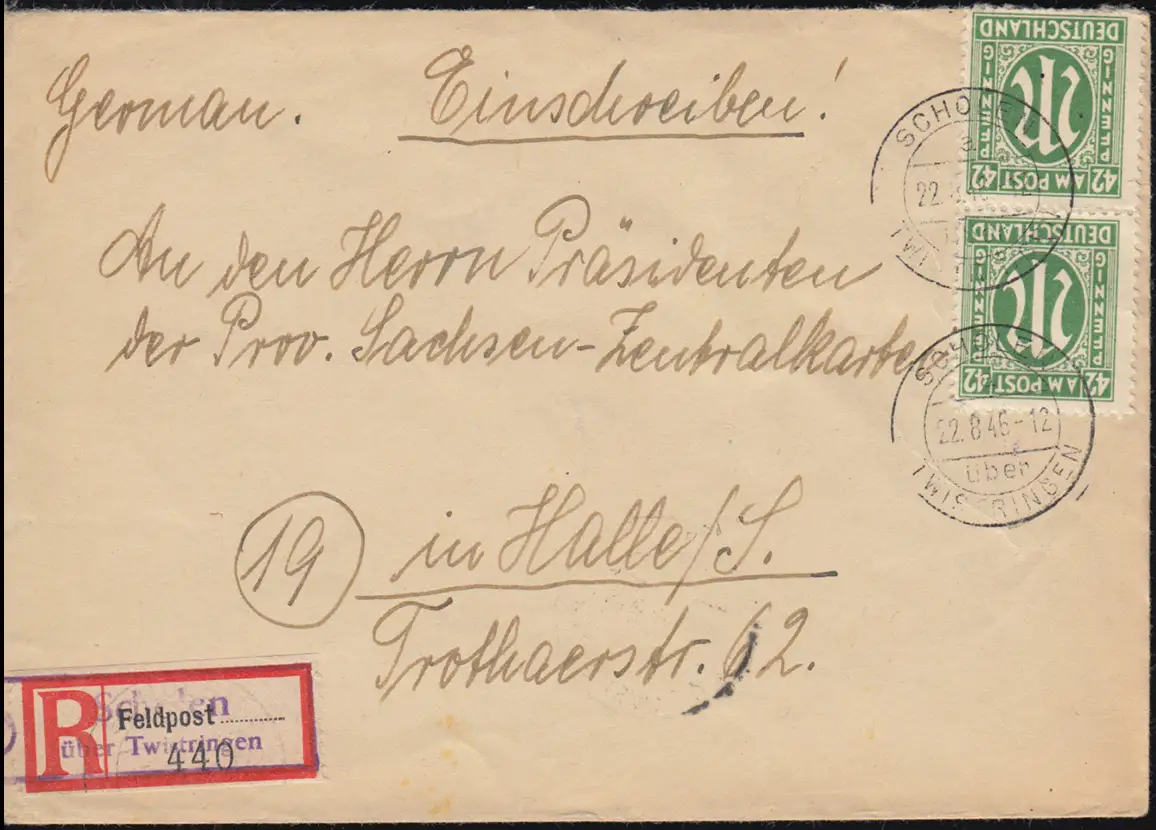 German. Einschreiben!
An den Herrn Präsidenten
der Prov. Sachsen-Zentralkartei
19 in Halle/S.
Trothaerstr. 62.
DEUTSCHLAND
PFENNIG
M
AM POST
42 42
DEUTSCHLAND
PFENNIG
M
AM POST
42 42
SCHOLEN
a
22.
SCHOLEN
22.8.46-12
über
TWISTRINGEN
R
Scholen
Feldpost
über Twistringen
440